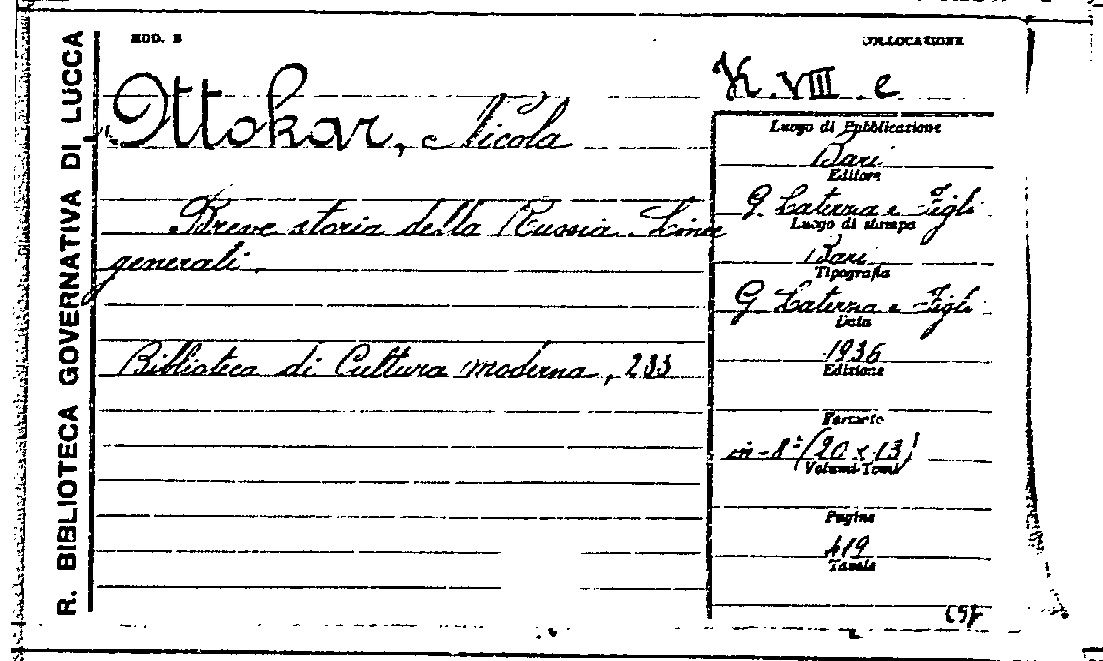 R. BIBLIOTECA GOVERNATIVA DI LUCCA
MOD. B
COLLOCAZIONE
K. VIII. e
Ottokar, Nicola
Breve storia della Russia. Linee
generali.
Biblioteca di Cultura moderna, 283
Luogo di Pubblicazione
Bari
Editore
G. Laterza e Figli
Luogo di stampa
Bari
Tipografia
G. Laterza e Figli
Data
1936
Edizione
Formato
in-8º (20 x 13)
Volumi-Tomi
Pagine
419
Tavole